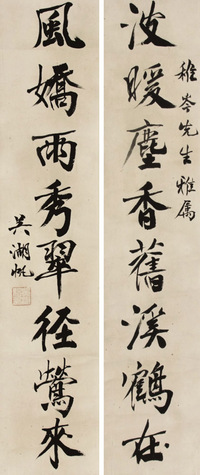 稚岑先生雅属
波暖塵香舊溪鶴在
風嬌雨秀翠徑鶯來
吳湖帆